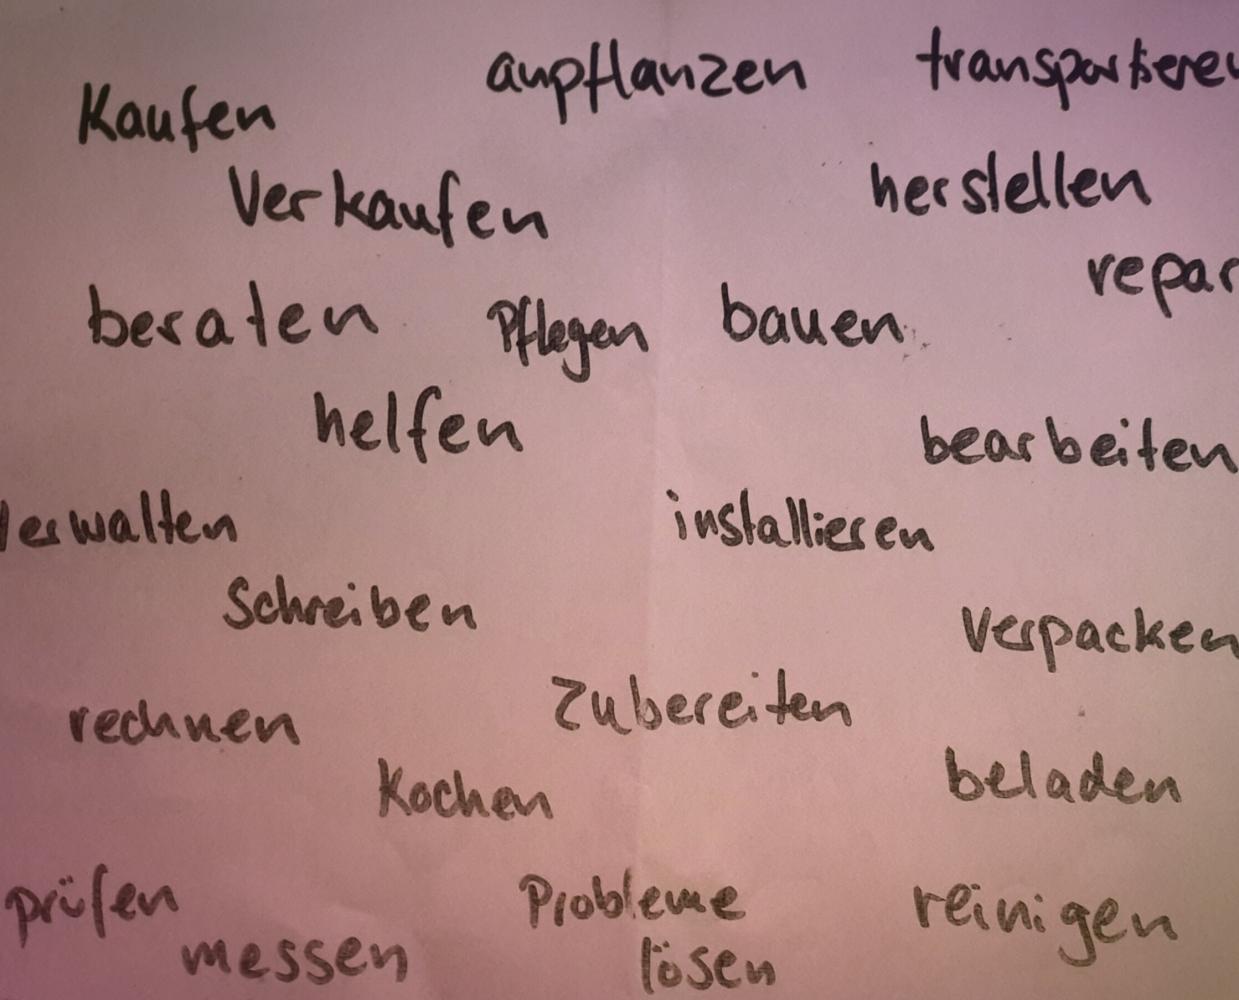 Kaufen
anpflanzen
transportieren
Verkaufen
herstellen
repar
beraten
Pflegen
bauen
helfen
bearbeiten
Verwalten
installieren
Schreiben
Verpacken
rechnen
Zubereiten
Kochen
beladen
prüfen
Probleme
lösen
reinigen
messen